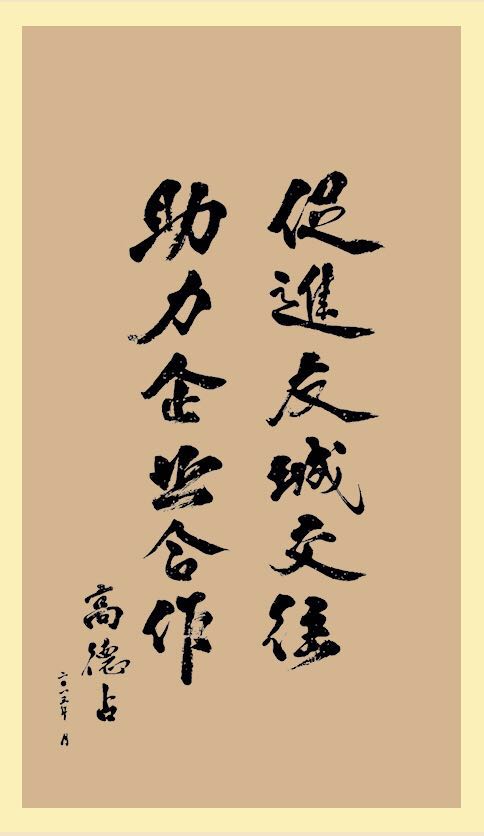 促進友城交往
助力企业合作
高德占
二〇一五年 月